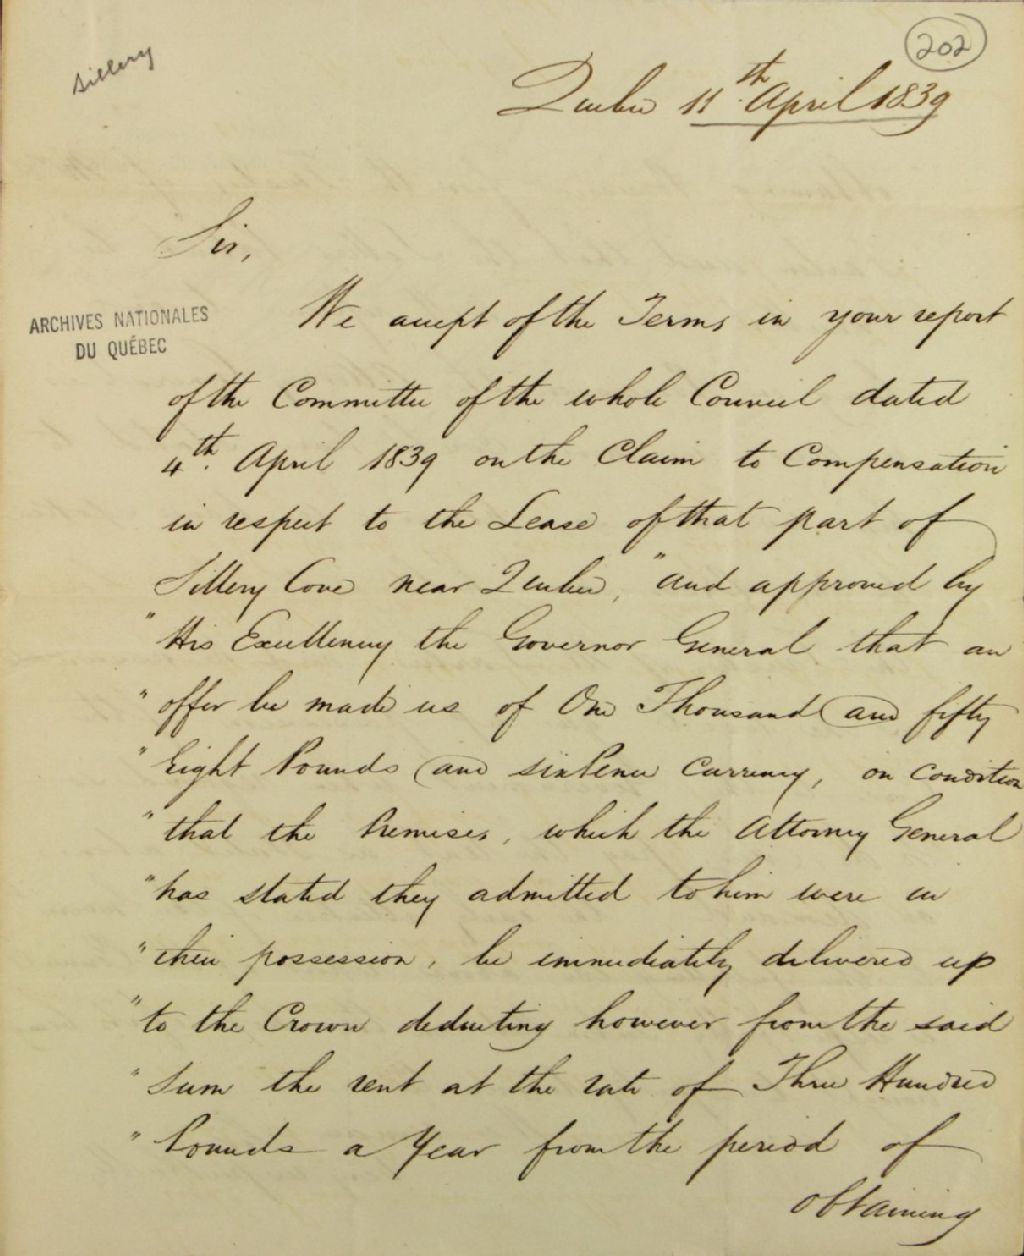 202
Sillery
Quebec 11th April 1839
Sir,
ARCHIVES NATIONALES
DU QUÉBEC
We accept of the Terms in your report
of the Committee of the whole Council dated
4th. April 1839 on the Claim to Compensation
in respect to the Lease of that part of
Sillery Cove near Quebec, "and approved by
" His Excellency the Governor General that an
" offer be made us of One Thousand and fifty
" Eight Pounds and six Pence Currency, on condition
" that the Premises, which the Attorney General
" has stated they admitted to him were in
" their possession, be immediately delivered up
" to the Crown deducting however from the said
" Sum the rent at the rate of Three Hundred
" Pounds a Year from the period of
obtaining